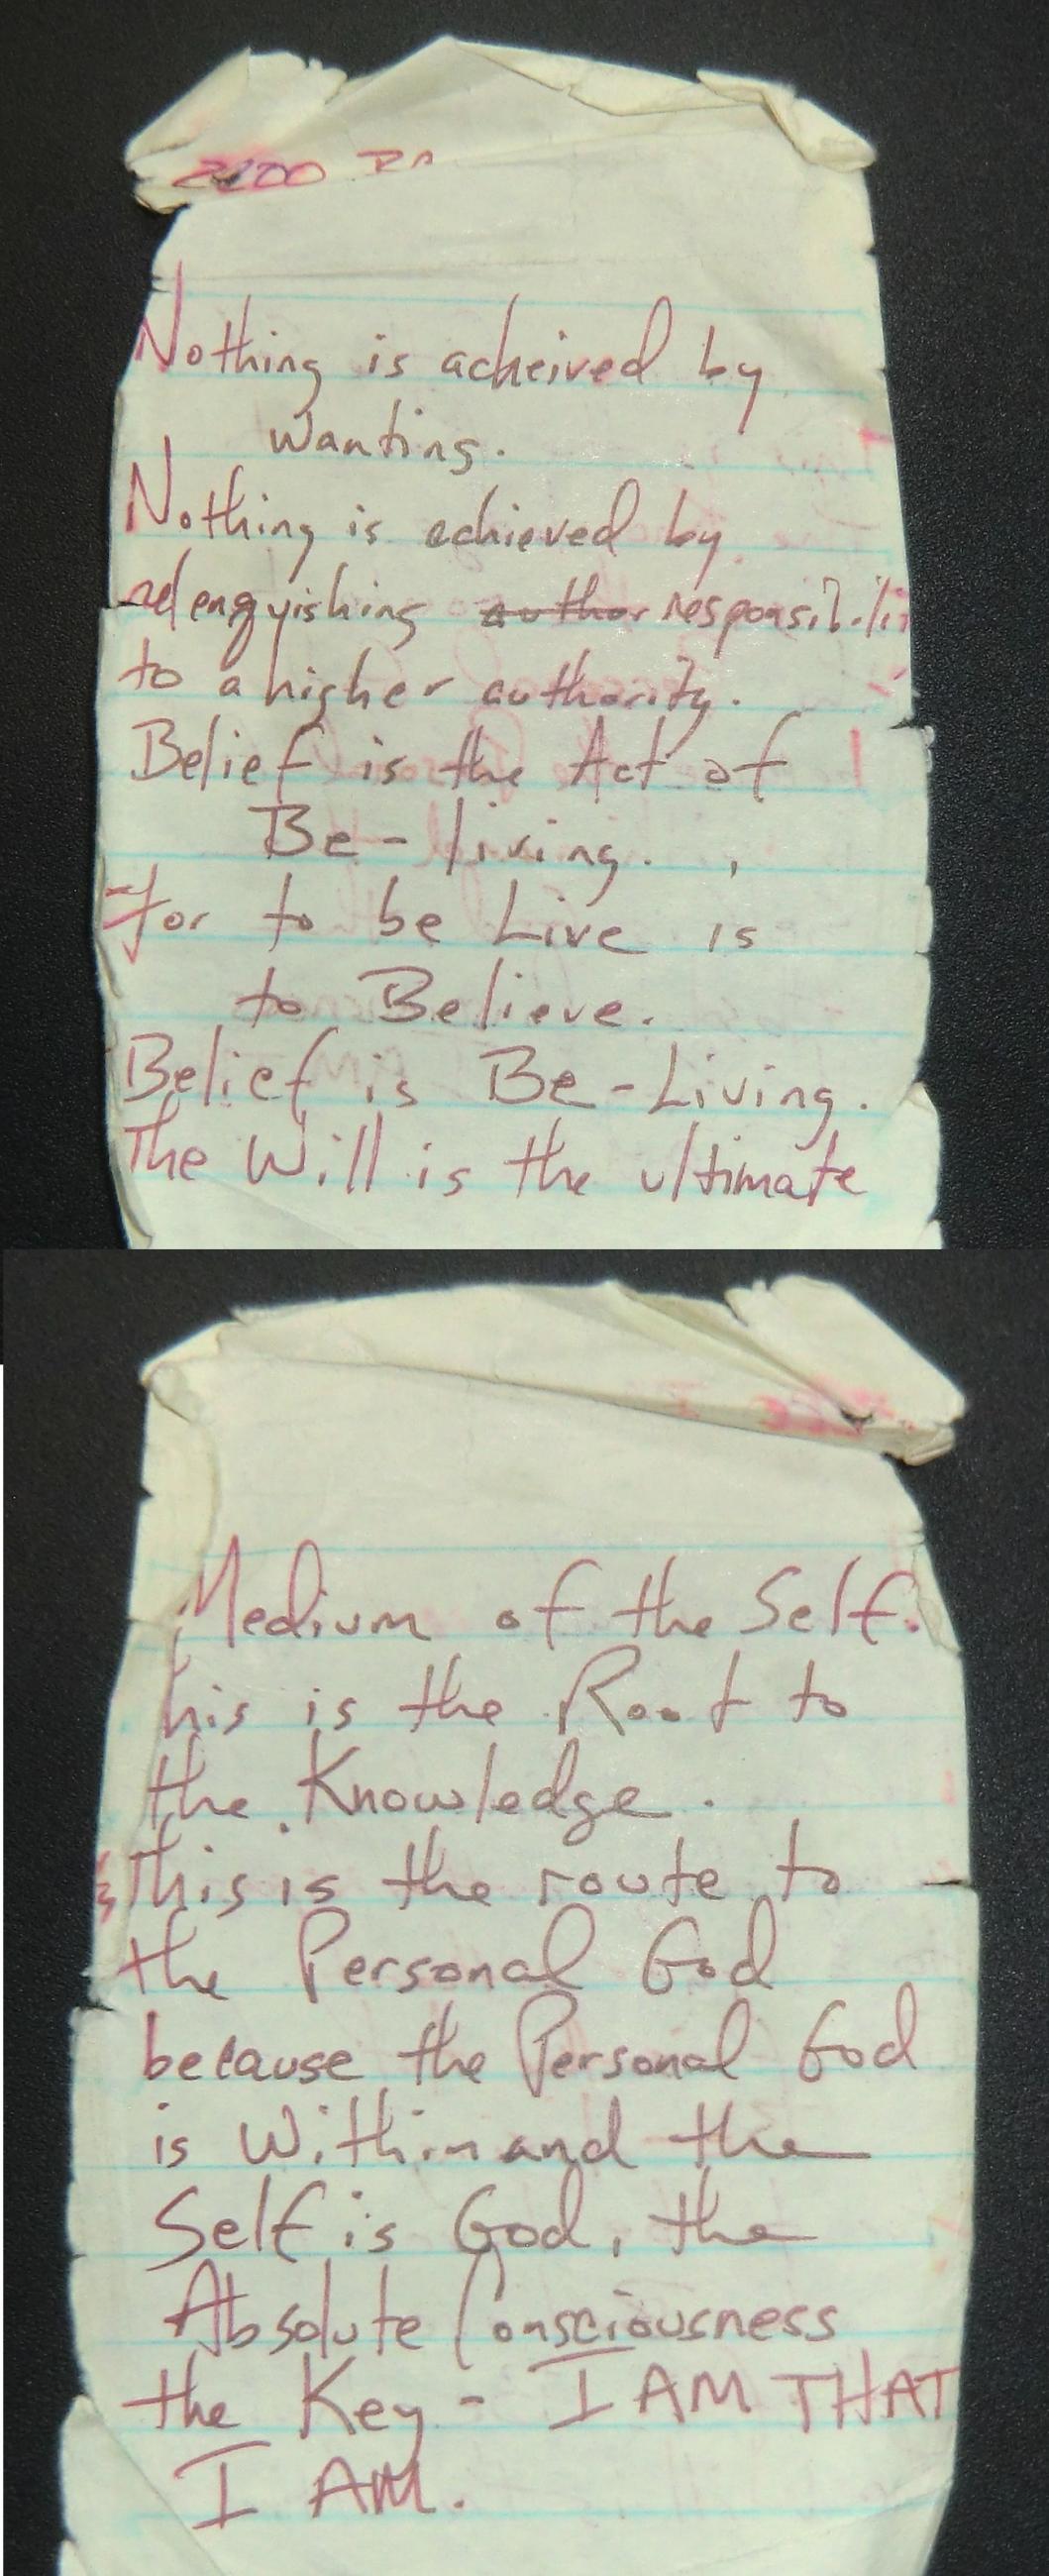 2200
Nothing is acheived by
wanting.
Nothing is achieved by
relenquishing author responsibili
to a higher authority.
Belief is the Act of
Be-living.
for to be Live is
to Believe.
Belief is Be-Living.
The Will is the ultimate
Medium of the Self.
his is the Root to
the Knowledge.
This is the route to
the Personal God
because the Personal God
is Within and the
Self is God, the
Absolute Consciousness
the Key - I AM THAT
I AM.